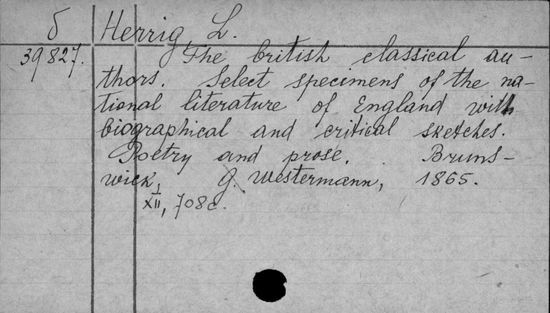 б Herrig L.
39827. The british classical au-
thors. Select specimens of the na-
tional literature of England with
biographical and critical sketches.
Poetry and prose. Bruns-
wick, G. Westermann, 1865.
XII, 708c.